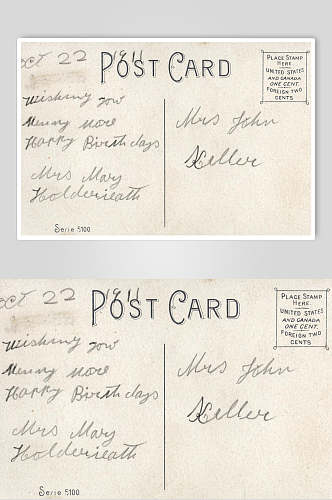 Oct 22 1911
POST CARD
PLACE STAMP
HERE
UNITED STATES
AND CANADA
ONE CENT.
FOREIGN TWO
CENTS
Wishing you
Menny More
Happy Birthdays
Mrs Mary
Holderieath
Mrs John
Keller
Serie 5100
Oct 22 1911
POST CARD
PLACE STAMP
HERE.
UNITED STATES
AND CANADA
ONE CENT.
FOREIGN TWO
CENTS
Wishing you
Menny More
Happy Birthdays
Mrs Mary
Holderieath
Mrs John
Keller
Serie 5100